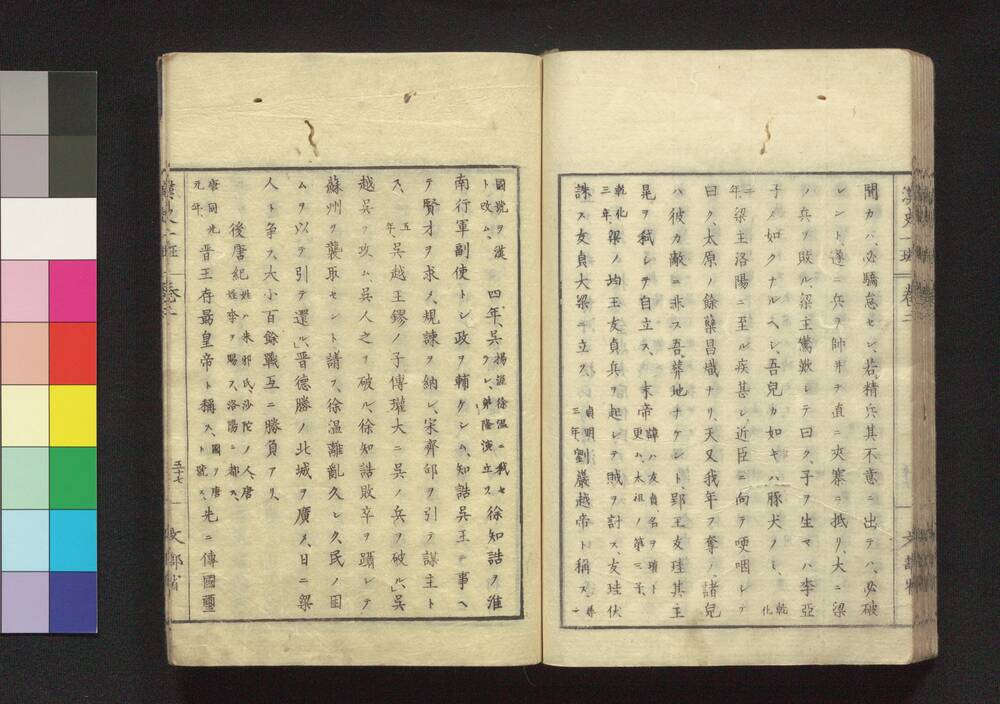 聞カハ、必驕怠セン、若精兵其不意ニ出テハ、必破
レント、遂ニ兵ヲ帥ヰテ直ニ夾寨ニ抵リ、大ニ梁
ノ兵ヲ敗ル、梁主驚歎レテ曰ク、子ヲ生マハ李亞
子ノ如クナルヘシ、吾兒カ如キハ豚犬ノミ、乾化
二年、梁主洛陽ニ至ル疾甚レ近臣ニ向テ哽咽レテ
曰ク、太原ノ餘蘖昌熾ナリ、天又我年ヲ奪ノ、諸兒
ハ彼カ敵ニ非ス吾葬地ナケント、郢王友珪其主
晃ヲ弒レテ自立ス、末帝諱ハ友貞、名ヲ瑱ト更ム、太祖ノ第三子、
乾化三年、梁ノ均王友貞兵ヲ起レテ賊ヲ討ス、友珪伏
誅ス友貞大梁ニ立ス、貞明三年、劉巖越帝ト稱ス、
國號ヲ漢ト改ム、四年、吳楊渥徐溫ニ弒セラレ、弟隆演立ス徐知誥ヲ淮
南行軍副使トシ政ヲ輔ケシム、知誥吳王ニ事ヘ
テ賢才ヲ求メ、規諫ヲ納レ、宋齊邱ヲ引テ謀主ト
ス、五年、吳越王鏐ノ子傳瓘大ニ吳ノ兵ヲ破ル、吳
越吳ヲ攻ム、吳人之ヲ破ル、徐知誥敗卒ヲ躡レテ
蘇州ヲ襲取セント請フ、徐溫離亂久レク民ノ困
ムヲ以テ引テ還ル、晉德勝ノ北城ヲ廣メ、日ニ梁
人ト争フ、大小百餘戰互ニ勝負アリ、
後唐紀姓ハ朱邪氏、沙陀ノ人、唐姓李ヲ賜フ、洛陽ニ都ス、
唐同光元年、晉王存勗皇帝ト稱ス、國ヲ唐ト號ス、先ニ傳國璽
漢史一班
卷三
五十七
文部省